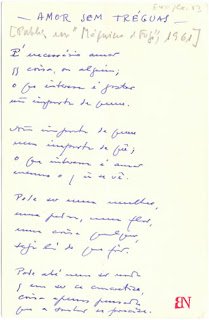 — AMOR SEM TRÉGUAS —
É necessário amar
qq coisa, ou alguém;
o que interessa é gostar
não importa de quem.
Não importa de quem
nem importa de quê;
o que interessa é amar
mesmo o q não se vê.
Pode ser uma mulher,
uma pedra, uma flor,
uma coisa qualquer,
seja lá do que for.
Pode até nem ser nada
q em ser se concretize,
coisa apenas pensada
BN